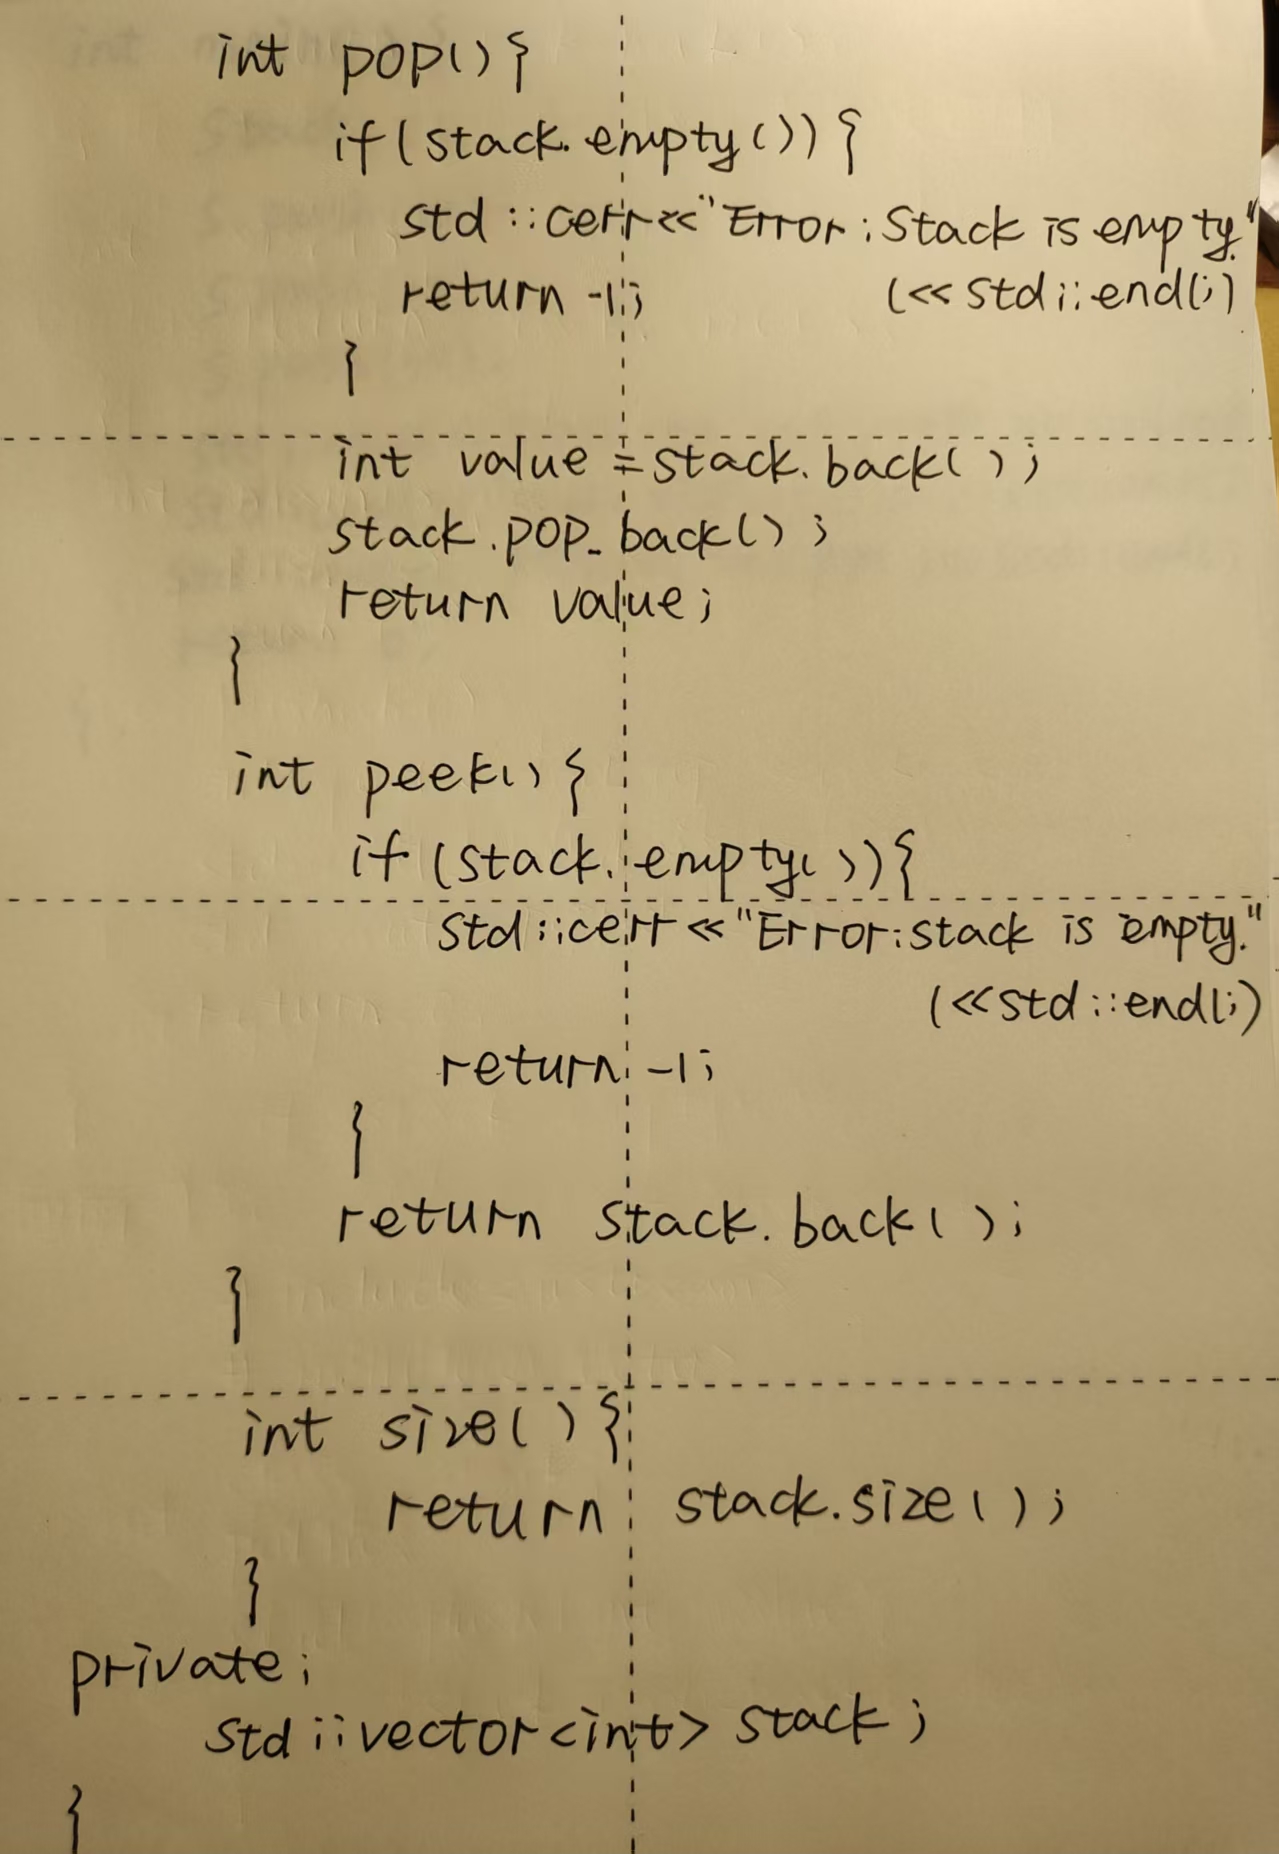 int pop(){
if(stack.empty()){
std::cerr<<"Error:Stack is empty."
return -1;
(<<std::endl;)
}
int value=stack.back();
stack.pop_back();
return value;
}
int peek(){
if(stack.empty()){
std::cerr<<"Error:stack is empty."
(<<std::endl;)
return -1;
}
return stack.back();
}
int size(){
return stack.size();
}
private:
std::vector<int> stack;
}